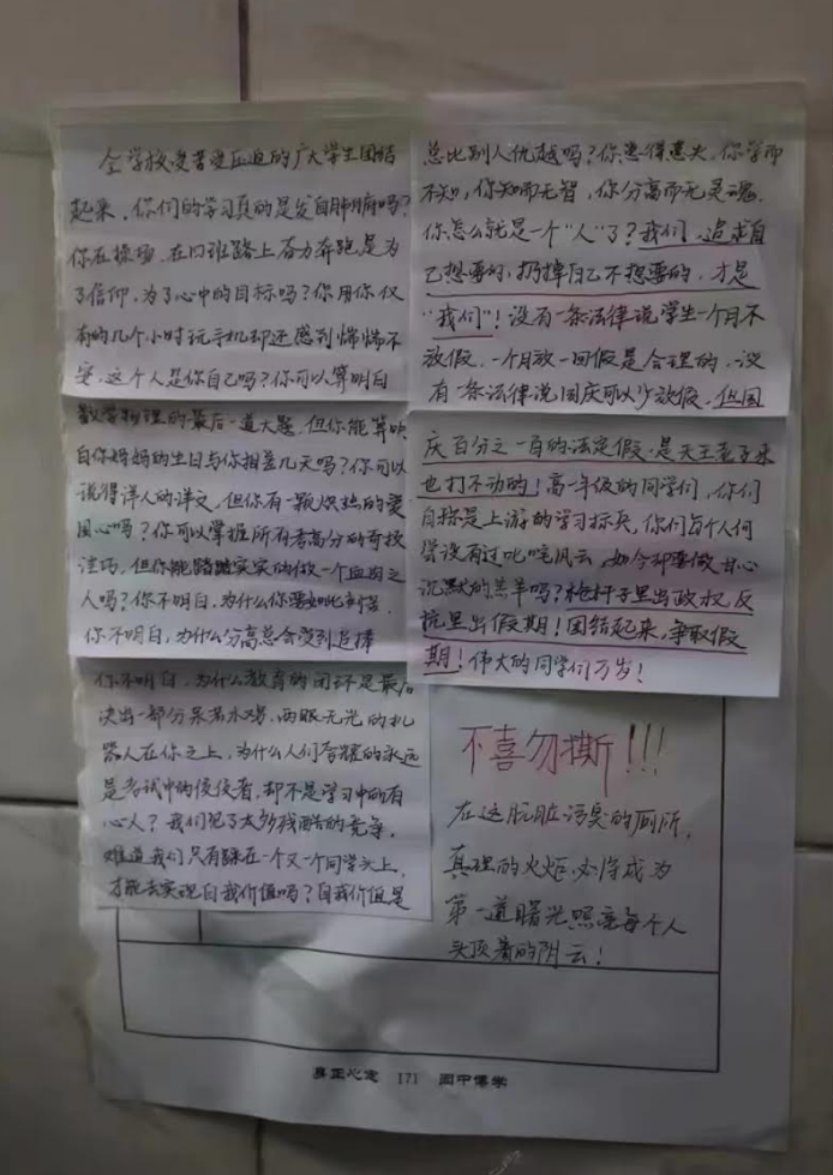 全学校受苦受压迫的广大学生团结
起来，你们的学习真的是发自肺腑吗?
你在操场，在回班路上奋力奔跑是为
了信仰，为了心中的目标吗?你用你仅
有的几个小时玩手机却还感到惴惴不
安，这个人是你自己吗?你可以算明白
数学物理的最后一道大题，但你能算明
白你妈妈的生日与你相差几天吗?你可以
说得洋人的洋文，但你有一颗炽热的爱
国心吗?你可以掌握所有考高分的奇技
淫巧，但你能踏踏实实的做一个血肉之
人吗?你不明白，为什么你要如此刻苦，
你不明白，为什么分高总会受到追捧
你不明白，为什么教育的闭环是最后
决出一部分呆若木鸡，两眼无光的机
器人在你之上，为什么人们夸耀的永远
是考试中的佼佼者，却不是学习中的有
心人? 我们见了太多残酷的竞争，
难道我们只有踩在一个又一个同学头上，
才能去实现自我价值吗?自我价值是
总比别人优越吗?你患得患失，你学而
不知，你知而无智，你分高而无灵魂，
你怎么就是一个"人"了?我们，追求自
己想要的，扔掉自己不想要的，才是
"我们"!没有一条法律说学生一个月不
放假，一个月放一回假是合理的，没
有一条法律说国庆可以少放假，但国
庆百分之一百的法定假，是天王老子来
也打不动的!高一年级的同学们，你们
自称是上游的学习标兵，你们每个人何
尝没有过叱咤风云，如今却要做甘心
沉默的羔羊吗?枪杆子里出政权，反
抗里出假期!团结起来，争取假
期!伟大的同学们万岁!
不喜勿撕!!!
在这肮脏污臭的厕所，
真理的火炬必将成为
第一道曙光照亮每个人
头顶着的阴云!
171